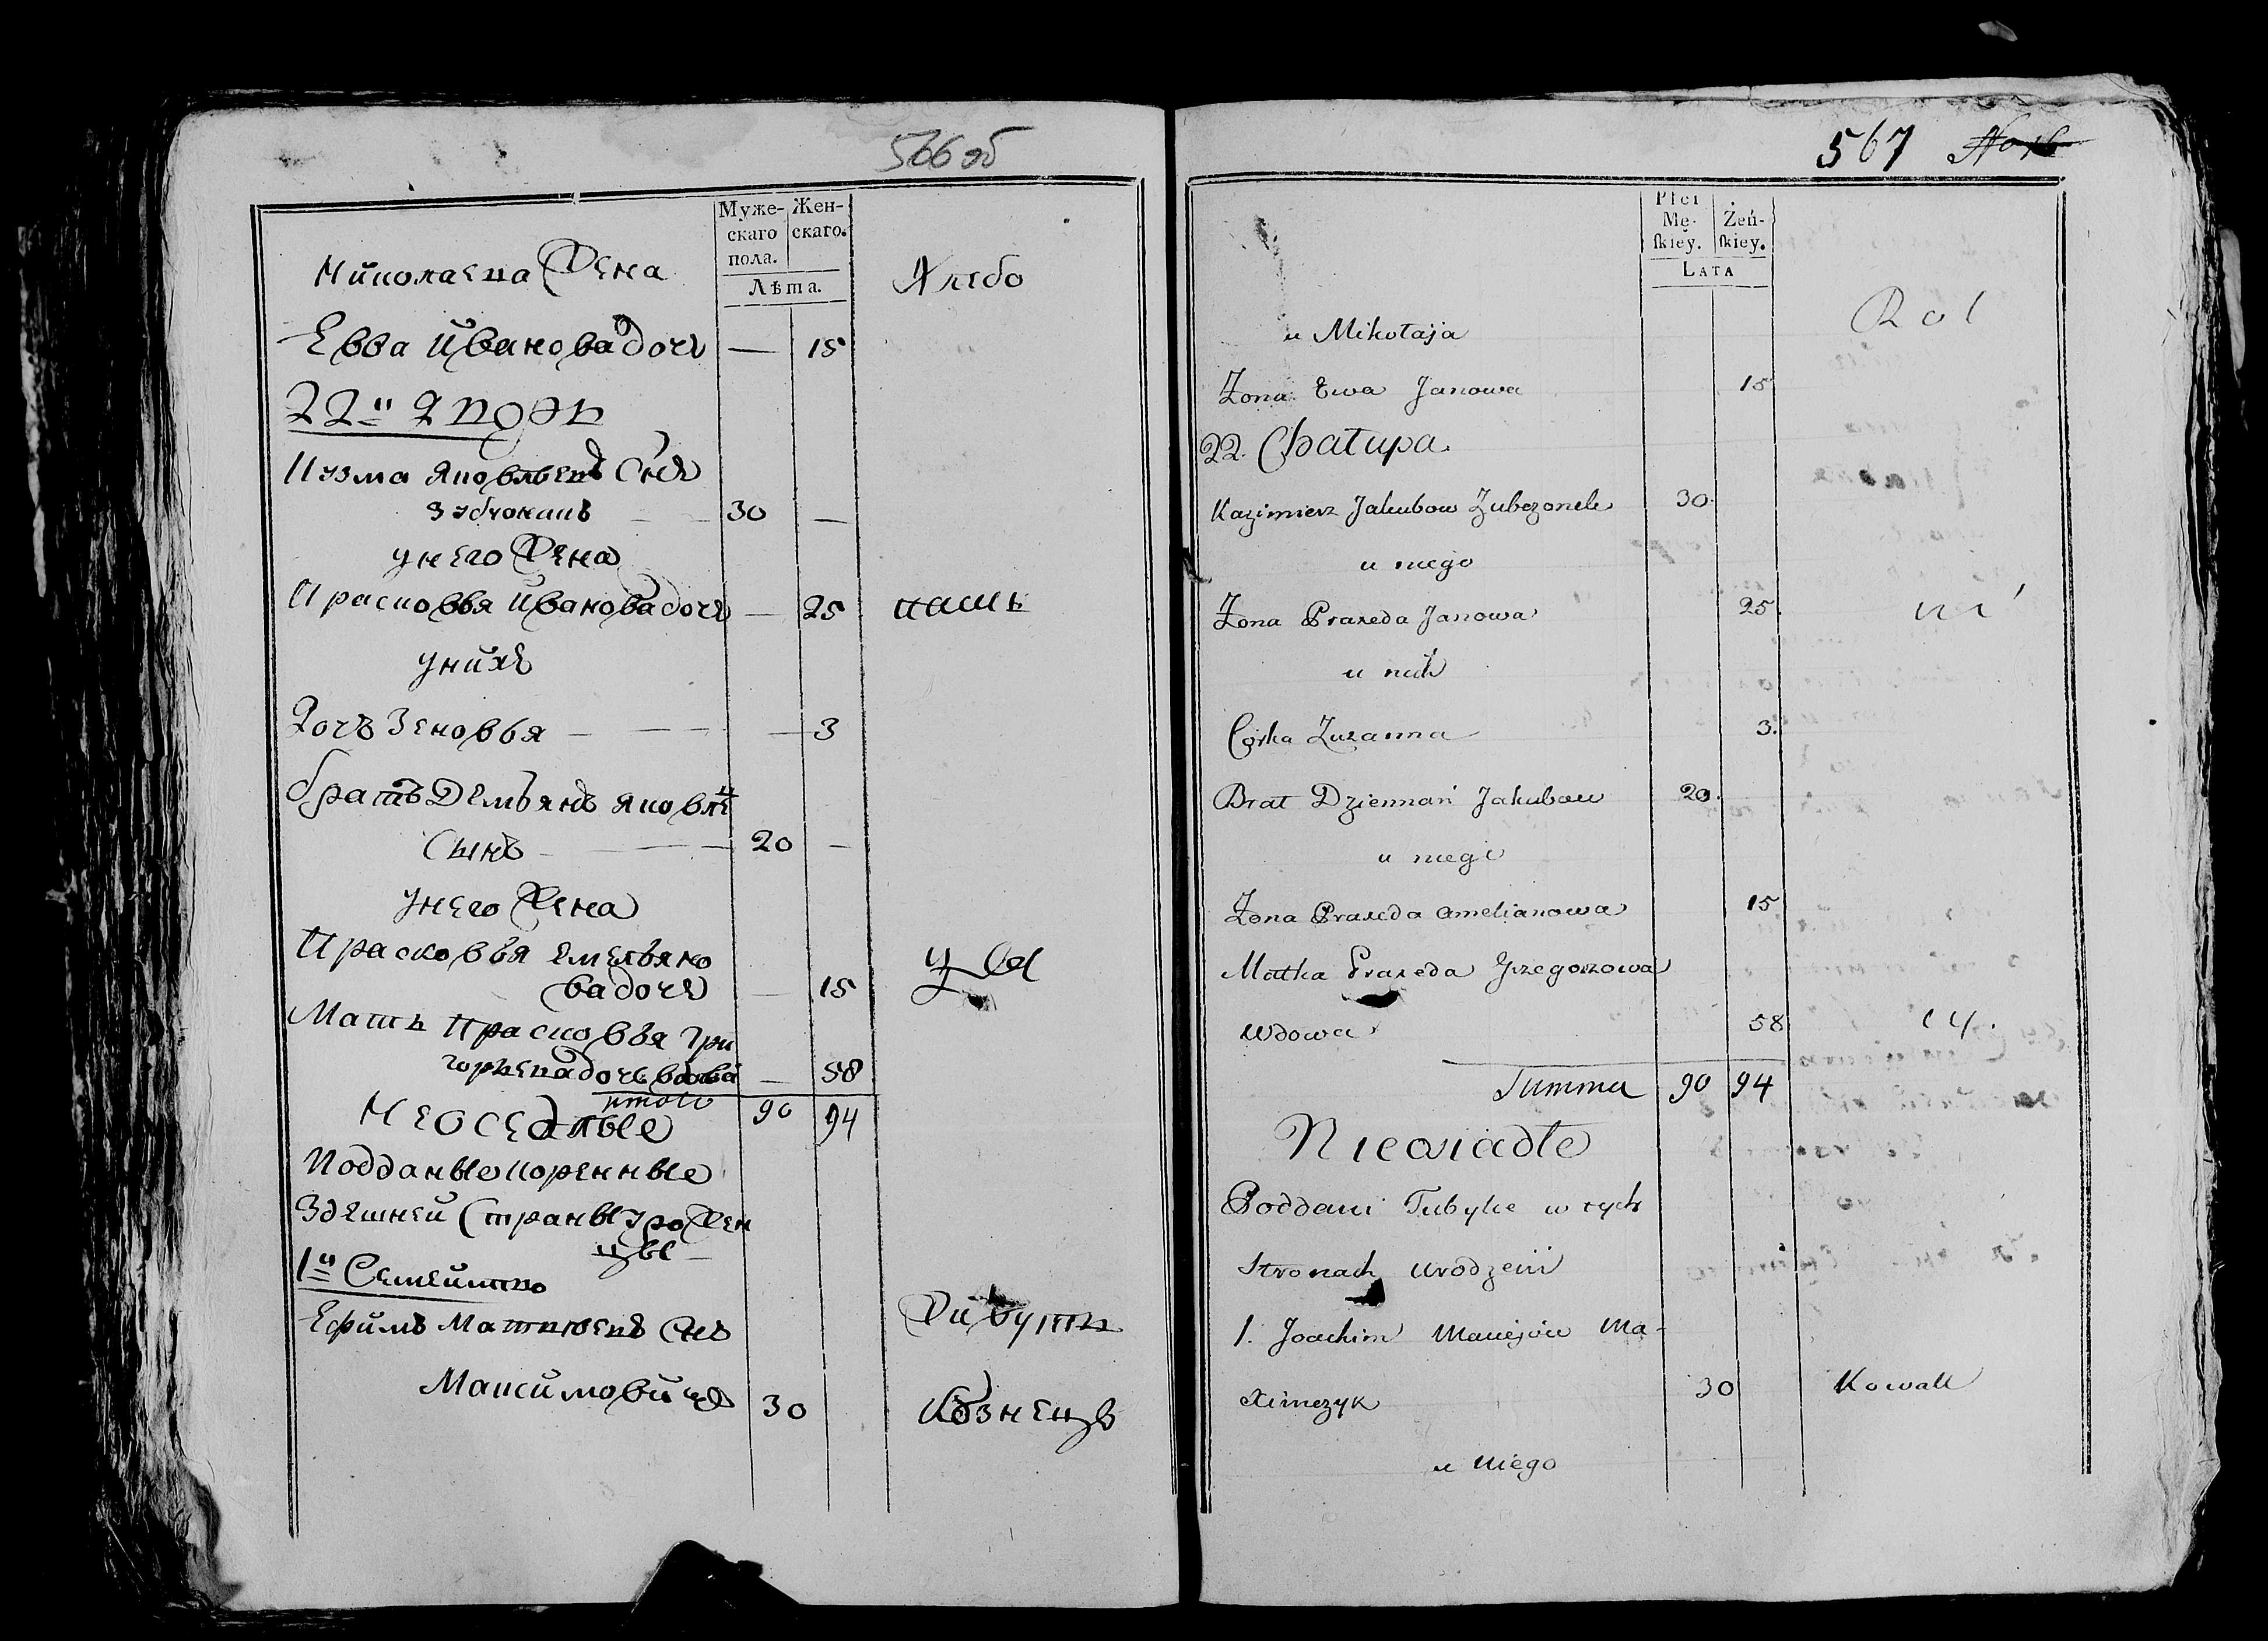 566 об
Муже-
скаго
пола.
Жен-
скаго.
Лѣта.
Николаева Жена
Хлебо
Евва Иванова дочь — 15
22й Дворъ
Кузма Яковлевъ Сынъ
Зубчоникъ 30 —
у него Жена
Прасковья Иванова дочь — 25
пашъ
у нихъ
Дочь Зеновья — 3
братъ Демьянъ Яковле
Сынъ 20 —
у него Жена
Прасковья Емельяно
ва дочь — 15
цы
Мать Прасковья Гри
горьева дочь вдова — 58
итого 90 94
Неоседлые
Подданые коренные
Здешней Страны урожен
цы
1й Семейство
Ефимъ Матвеевъ Снъ
Живутъ
Максимовичъ 30
Кознецъ
567
Płci
Mę-
skiey.
Żeń-
skiey.
LATA
Rol
u Mikołaja
Żona Ewa Janowa 15
22. Chałupa
Kazimierz Jakubow Zubczonek 30.
u niego
Żona Praxeda Janowa 25.
ni
u nich
Corka Zuzanna 3.
Brat Dziemian Jakubow 20.
u niego
Żona Praxeda Amelianowa 15
Matka Praxeda Grzegorzowa
Wdowa 58
cy.
Summa 90 94
Nieosiadłe
Poddani Tubylce w tych
Stronach urodzeni
1. Joachim Maciejów Ma-
ximczyk 30 Kowall
u niego